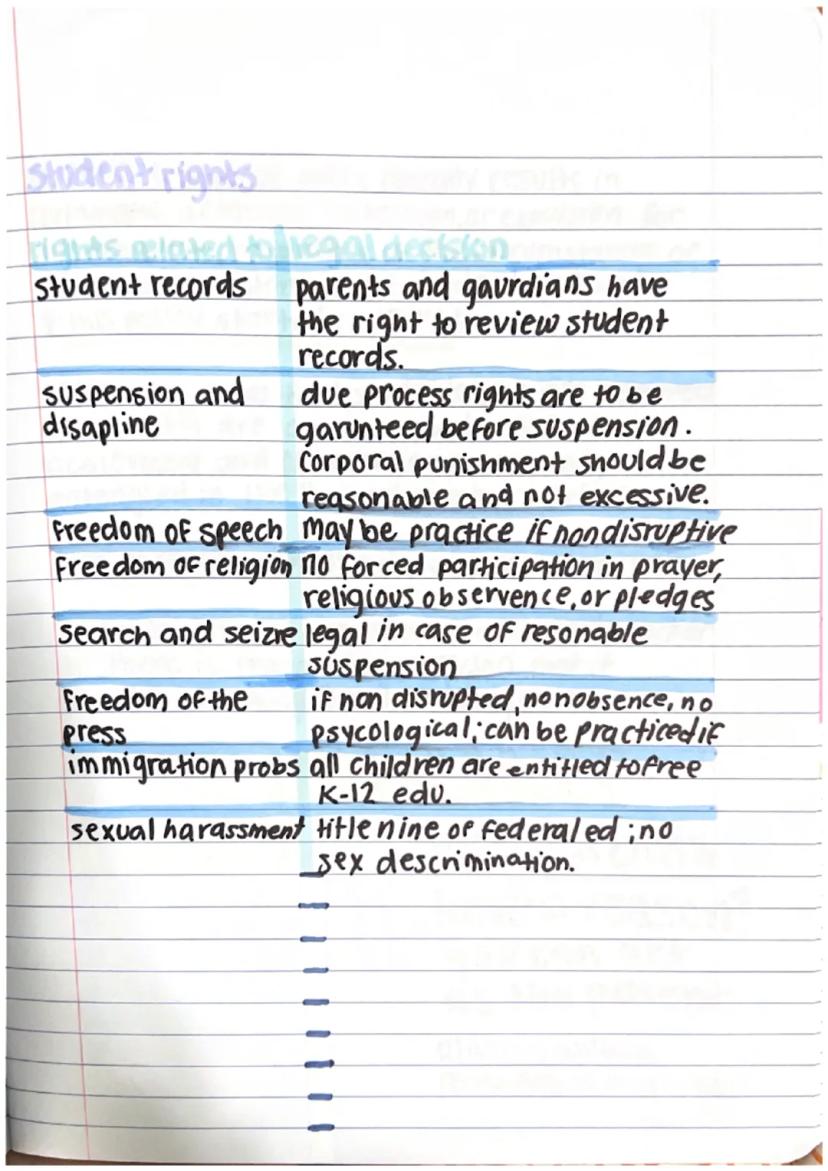 student rights
rights related to legal decision
student records parents and gaurdians have
the right to review student
records.
suspension and due process rights are to be
disapline garunteed before suspension.
corporal punishment should be
reasonable and not excessive.
freedom of speech may be practice if nondisruptive
freedom of religion no forced participation in prayer,
religious observence, or pledges
search and seizre legal in case of resonable
suspension
freedom of the if non disrupted, no nobsence, no
press psycological; can be practiced if
immigration probs all children are entitled to free
K-12 edu.
sexual harassment title nine of federal ed; no
sex descrimination.